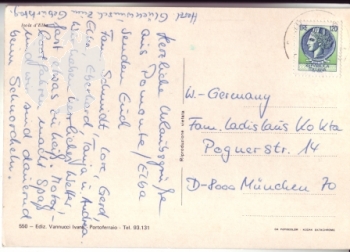 Herzl. Glückwunsch zum Geburtstag
Isola d'Elba
Herzliche Urlaubsgrüße
aus Pomonte/Elba
senden Euch
Fam. Schmidt, Lore, Gerd
Elisa, Eberhard, Tanja u. Andrea
Wir haben herrliches Wetter,
fast etwas zu heiß. Motor-
bootfahren macht Spaß
und wir sind dauernd
beim Schnorcheln.
W-Germany
Fam. Ladislaus Kokta
Pognerstr. 14
D-8000 München 70
500 - Ediz. Vannucci Ivano - Portoferraio - Tel. 93.131